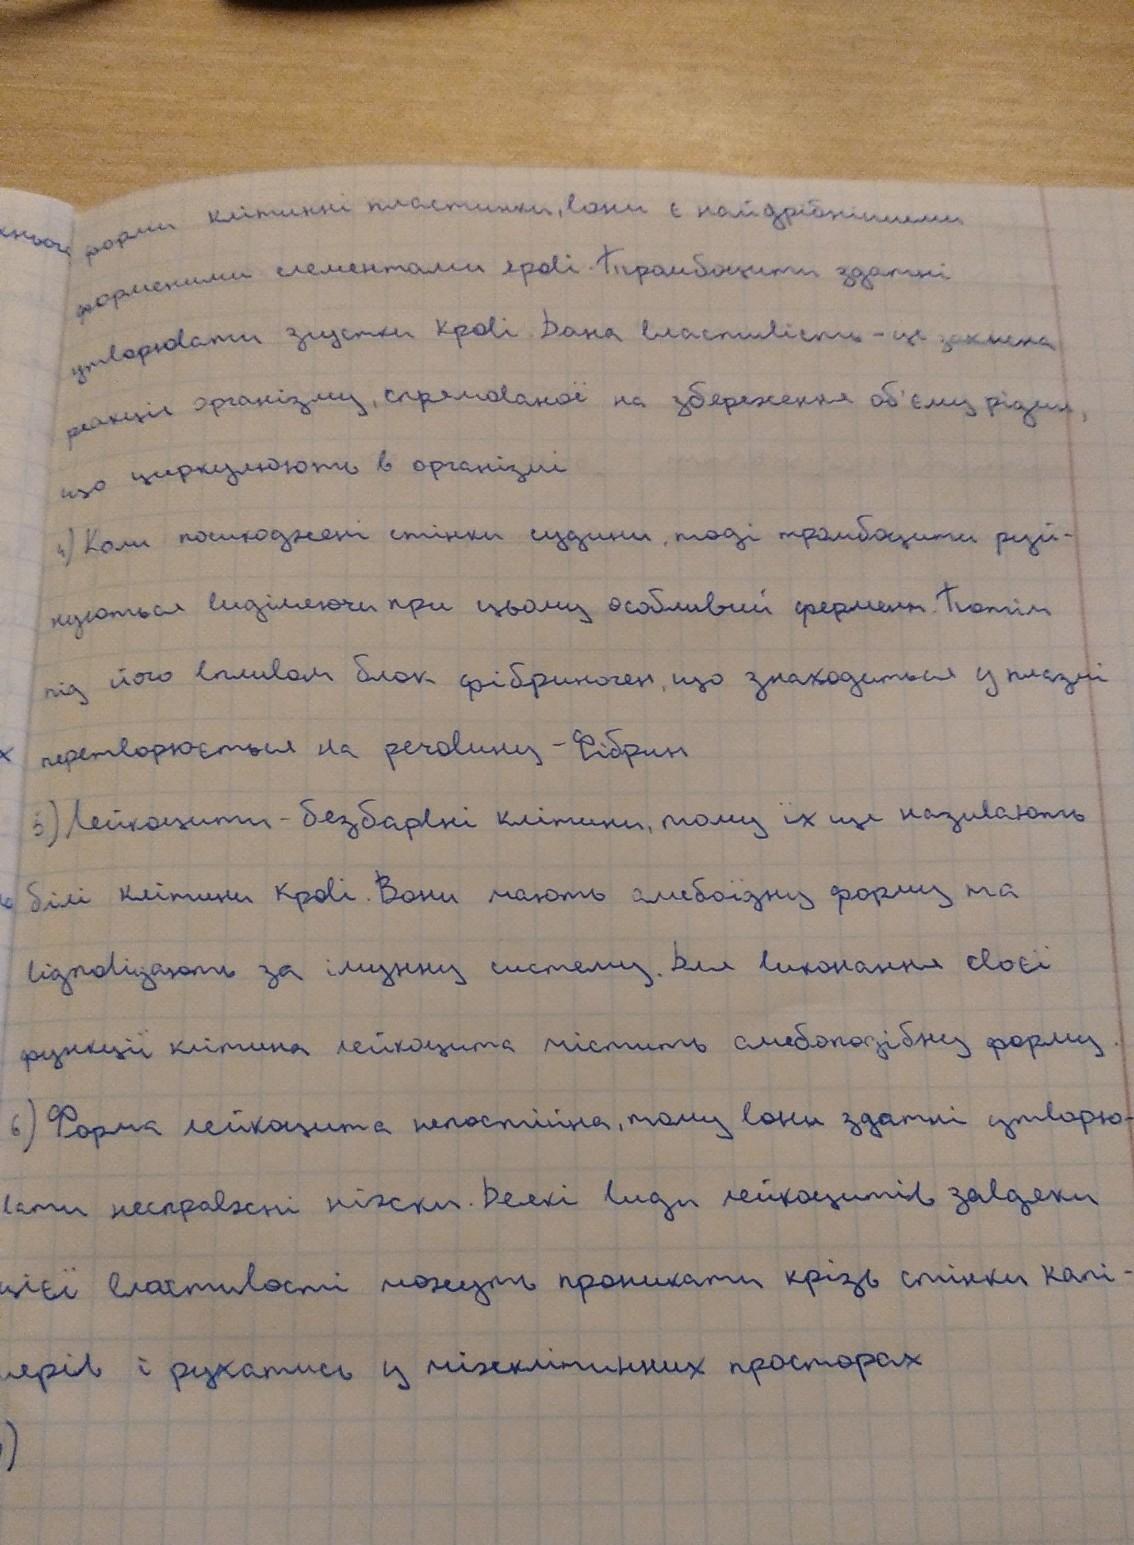 форми клітинні пластинки, вони є найдрібнішими
форменими елементами крові. Тромбоцити здатні
утворювати згустки крові. Дана властивість - це захисна
реакція організму, спрямованої на збереження об'єму рідин,
що циркулюють в організмі
4) Коли пошкоджені стінки судини, тоді тромбоцити руй-
нуються виділяючи при цьому особливий фермент. Потім
під його впливом білок фібриноген, що знаходиться у плазмі
перетворюється на речовину - Фібрин
5) Лейкоцити - безбарвні клітини, тому їх ще називають
білі клітини крові. Вони мають амебоїдну форму та
відповідають за імунну систему. Для виконання своєї
функції клітина лейкоцита містить амебоподібну форму.
6) Форма лейкоцита непостійна, тому вони здатні утворю-
вати несправжні ніжки. Деякі види лейкоцитів завдяки
цієї властивості можуть проникати крізь стінки капі-
лярів і рухатись у міжклітинних просторах
)